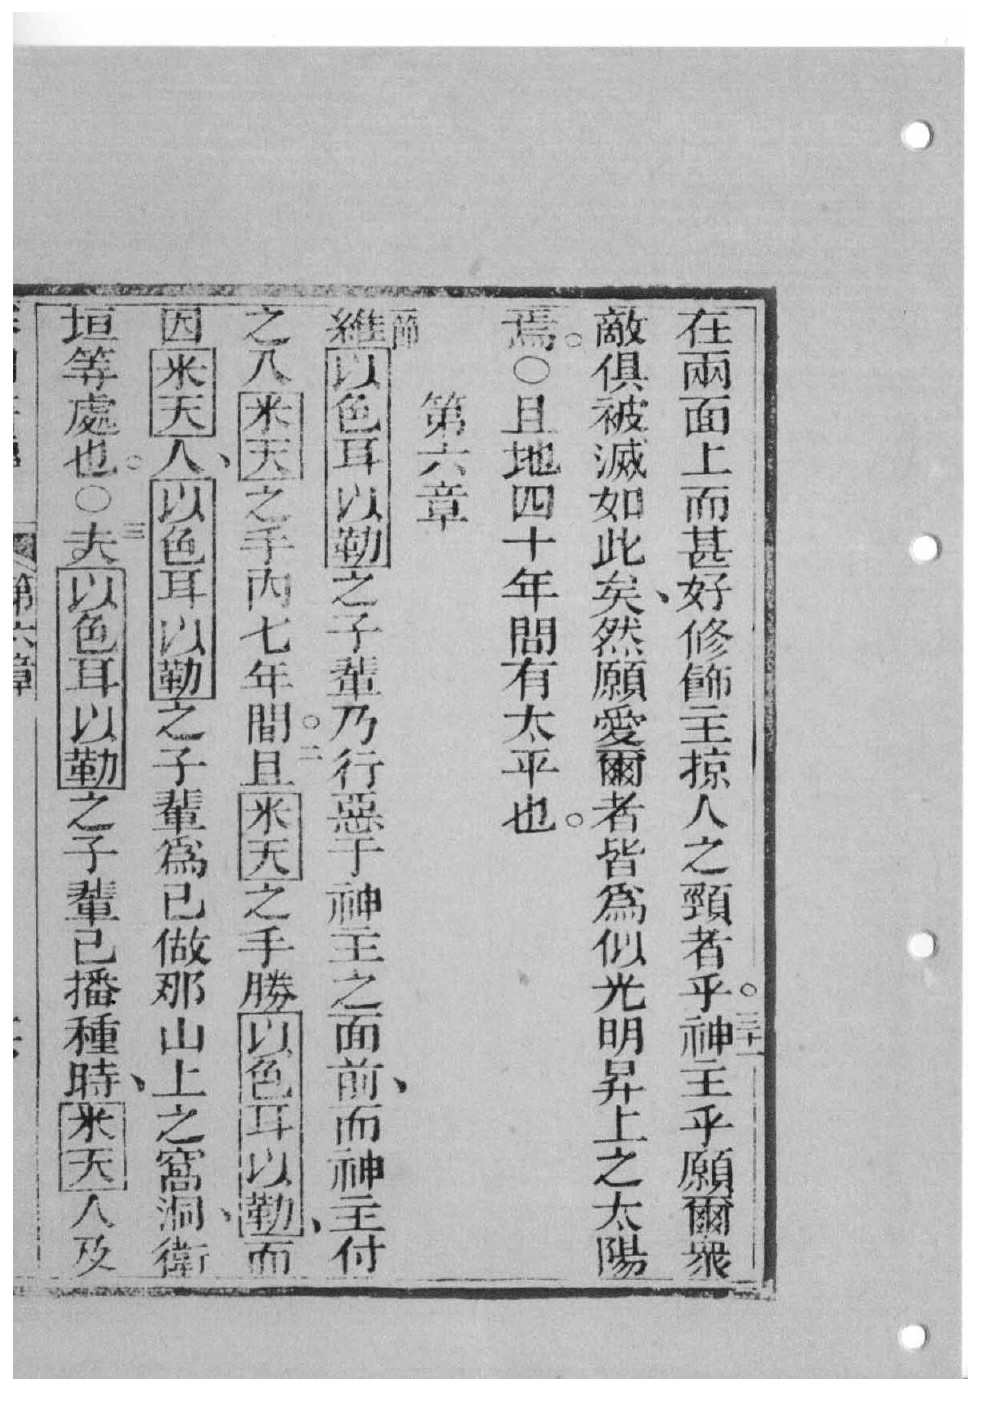 在兩面上而甚好修飾主掠人之頸者乎。三十一神主乎願爾衆
敵俱被滅如此矣、然願愛爾者皆爲似光明昇上之太陽
焉。○且地四十年間有太平也。
第六章
一節維以色耳以勒之子輩乃行惡于神主之面前、而神主付
之入米天之手內七年間。二且米天之手勝以色耳以勒、而
因米天人、以色耳以勒之子輩爲已做那山上之窩洞、衛
垣等處也。○三夫以色耳以勒之子輩已播種時、米天人及
第六章